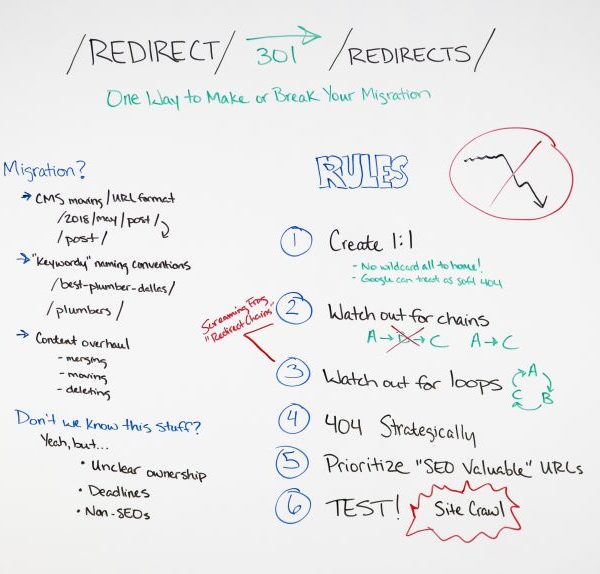 /REDIRECT/ 301 /REDIRECTS/
One Way to Make or Break Your Migration
Migration?
→ CMS moving/URL format
/2018/may/post/
/post/
→ "Keywordy" naming conventions
/best-plumber-dallas/
/plumbers/
→ Content overhaul
- merging
- moving
- deleting
Don't we know this stuff?
Yeah, but...
• Unclear ownership
• Deadlines
• Non-SEOs
RULES
1 Create 1:1
- No wildcard all to home!
- Google can treat as soft 404
Screaming Frog
"Redirect Chains"
2 Watch out for chains
A→B→C A→C
3 Watch out for loops A B C
4 404 Strategically
5 Prioritize "SEO Valuable" URLs
6 TEST! Site Crawl